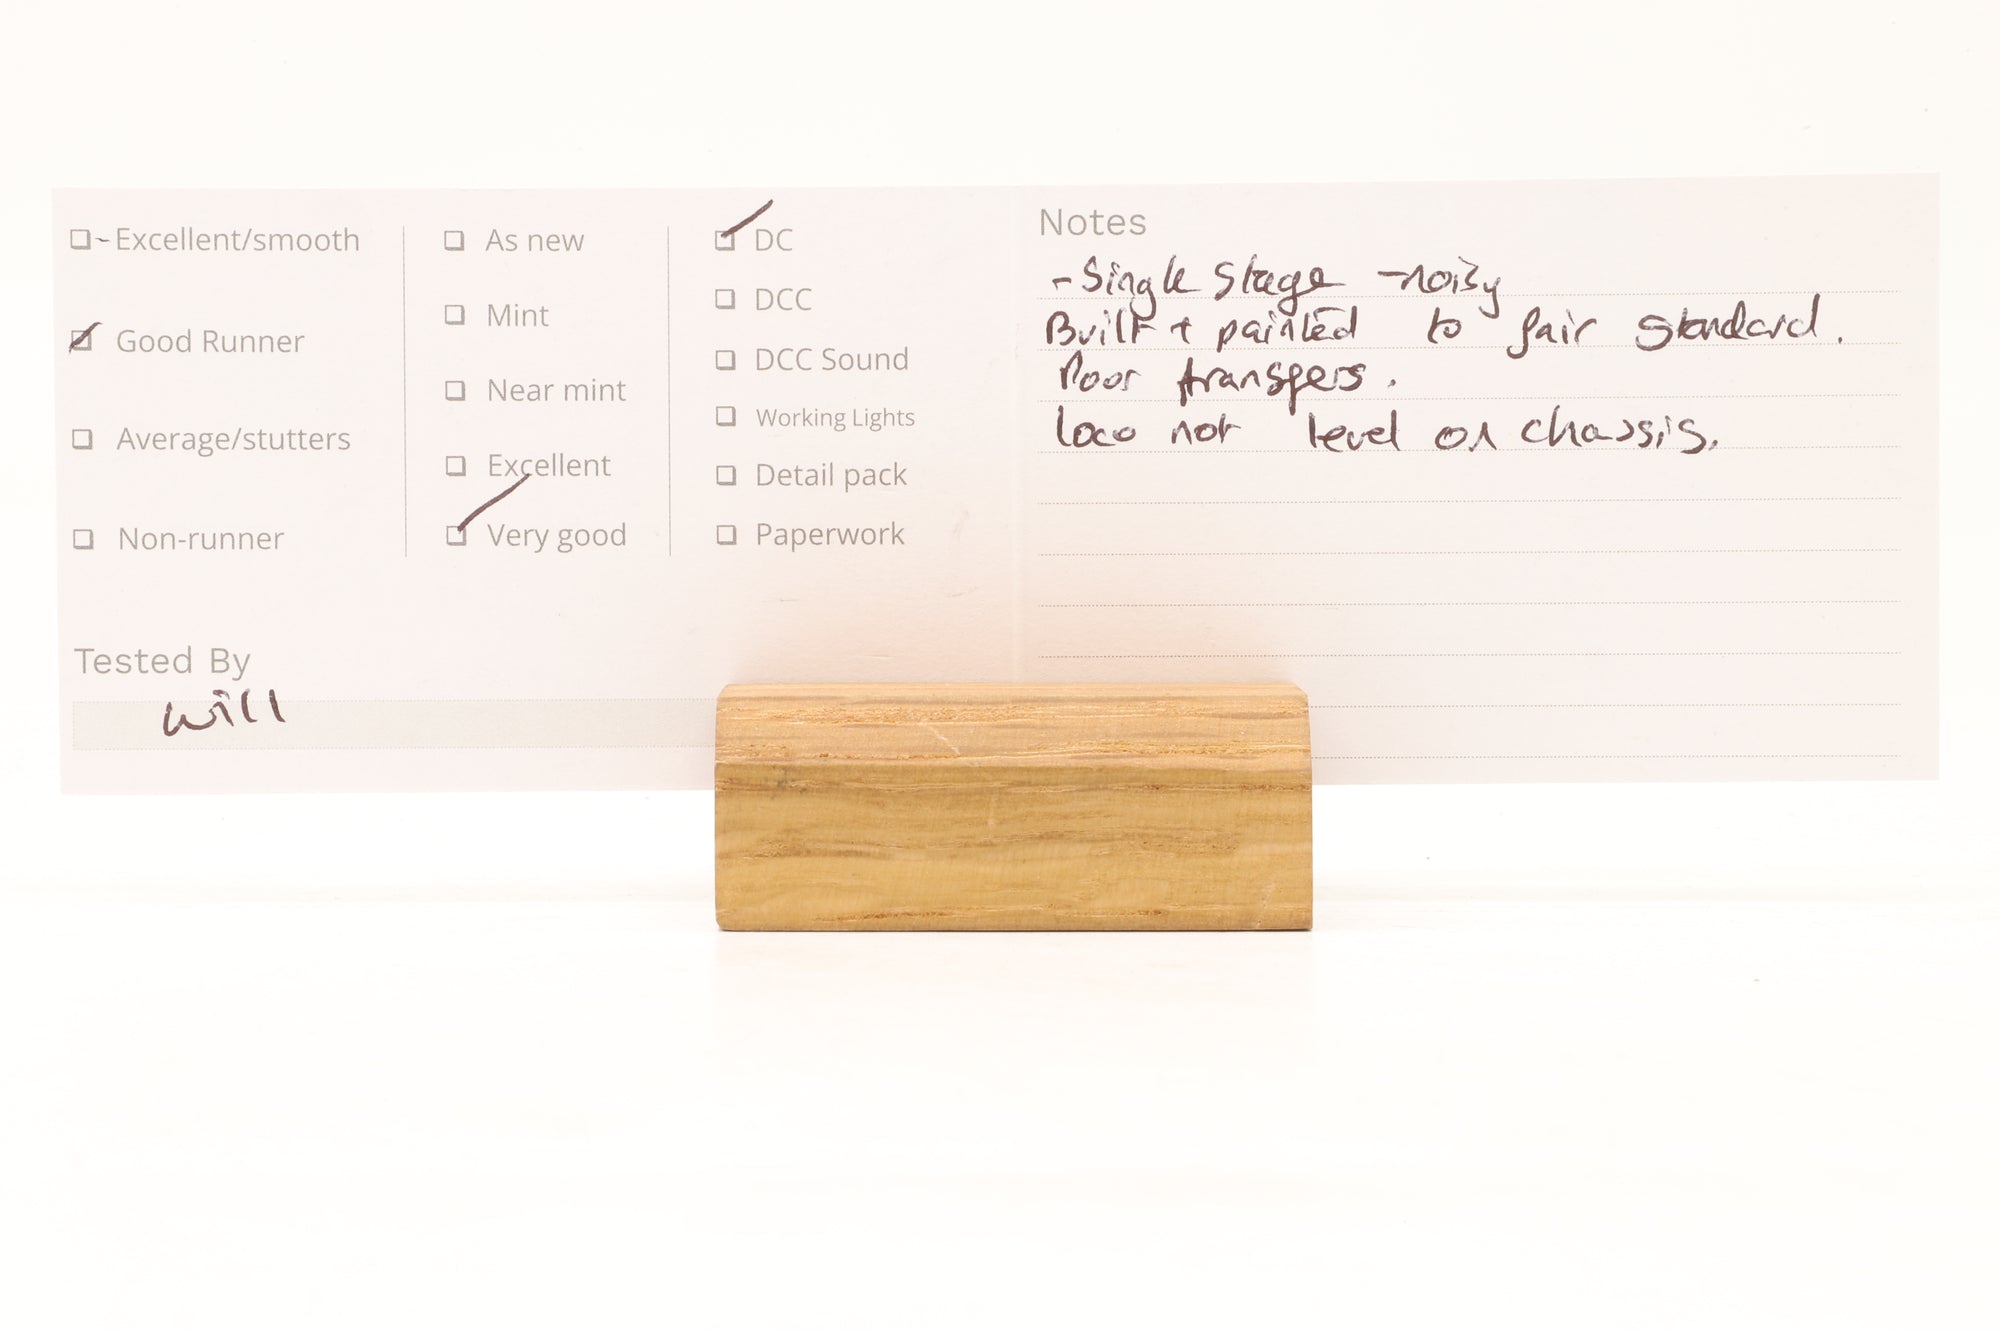 - Excellent/smooth
Good Runner
Average/stutters
Non-runner
As new
Mint
Near mint
Excellent
Very good
DC
DCC
DCC Sound
Working Lights
Detail pack
Paperwork
Tested By
Will
Notes
- Single Stage - noisy
Built + painted to fair standard.
Poor transfers.
Loco not level on chassis.